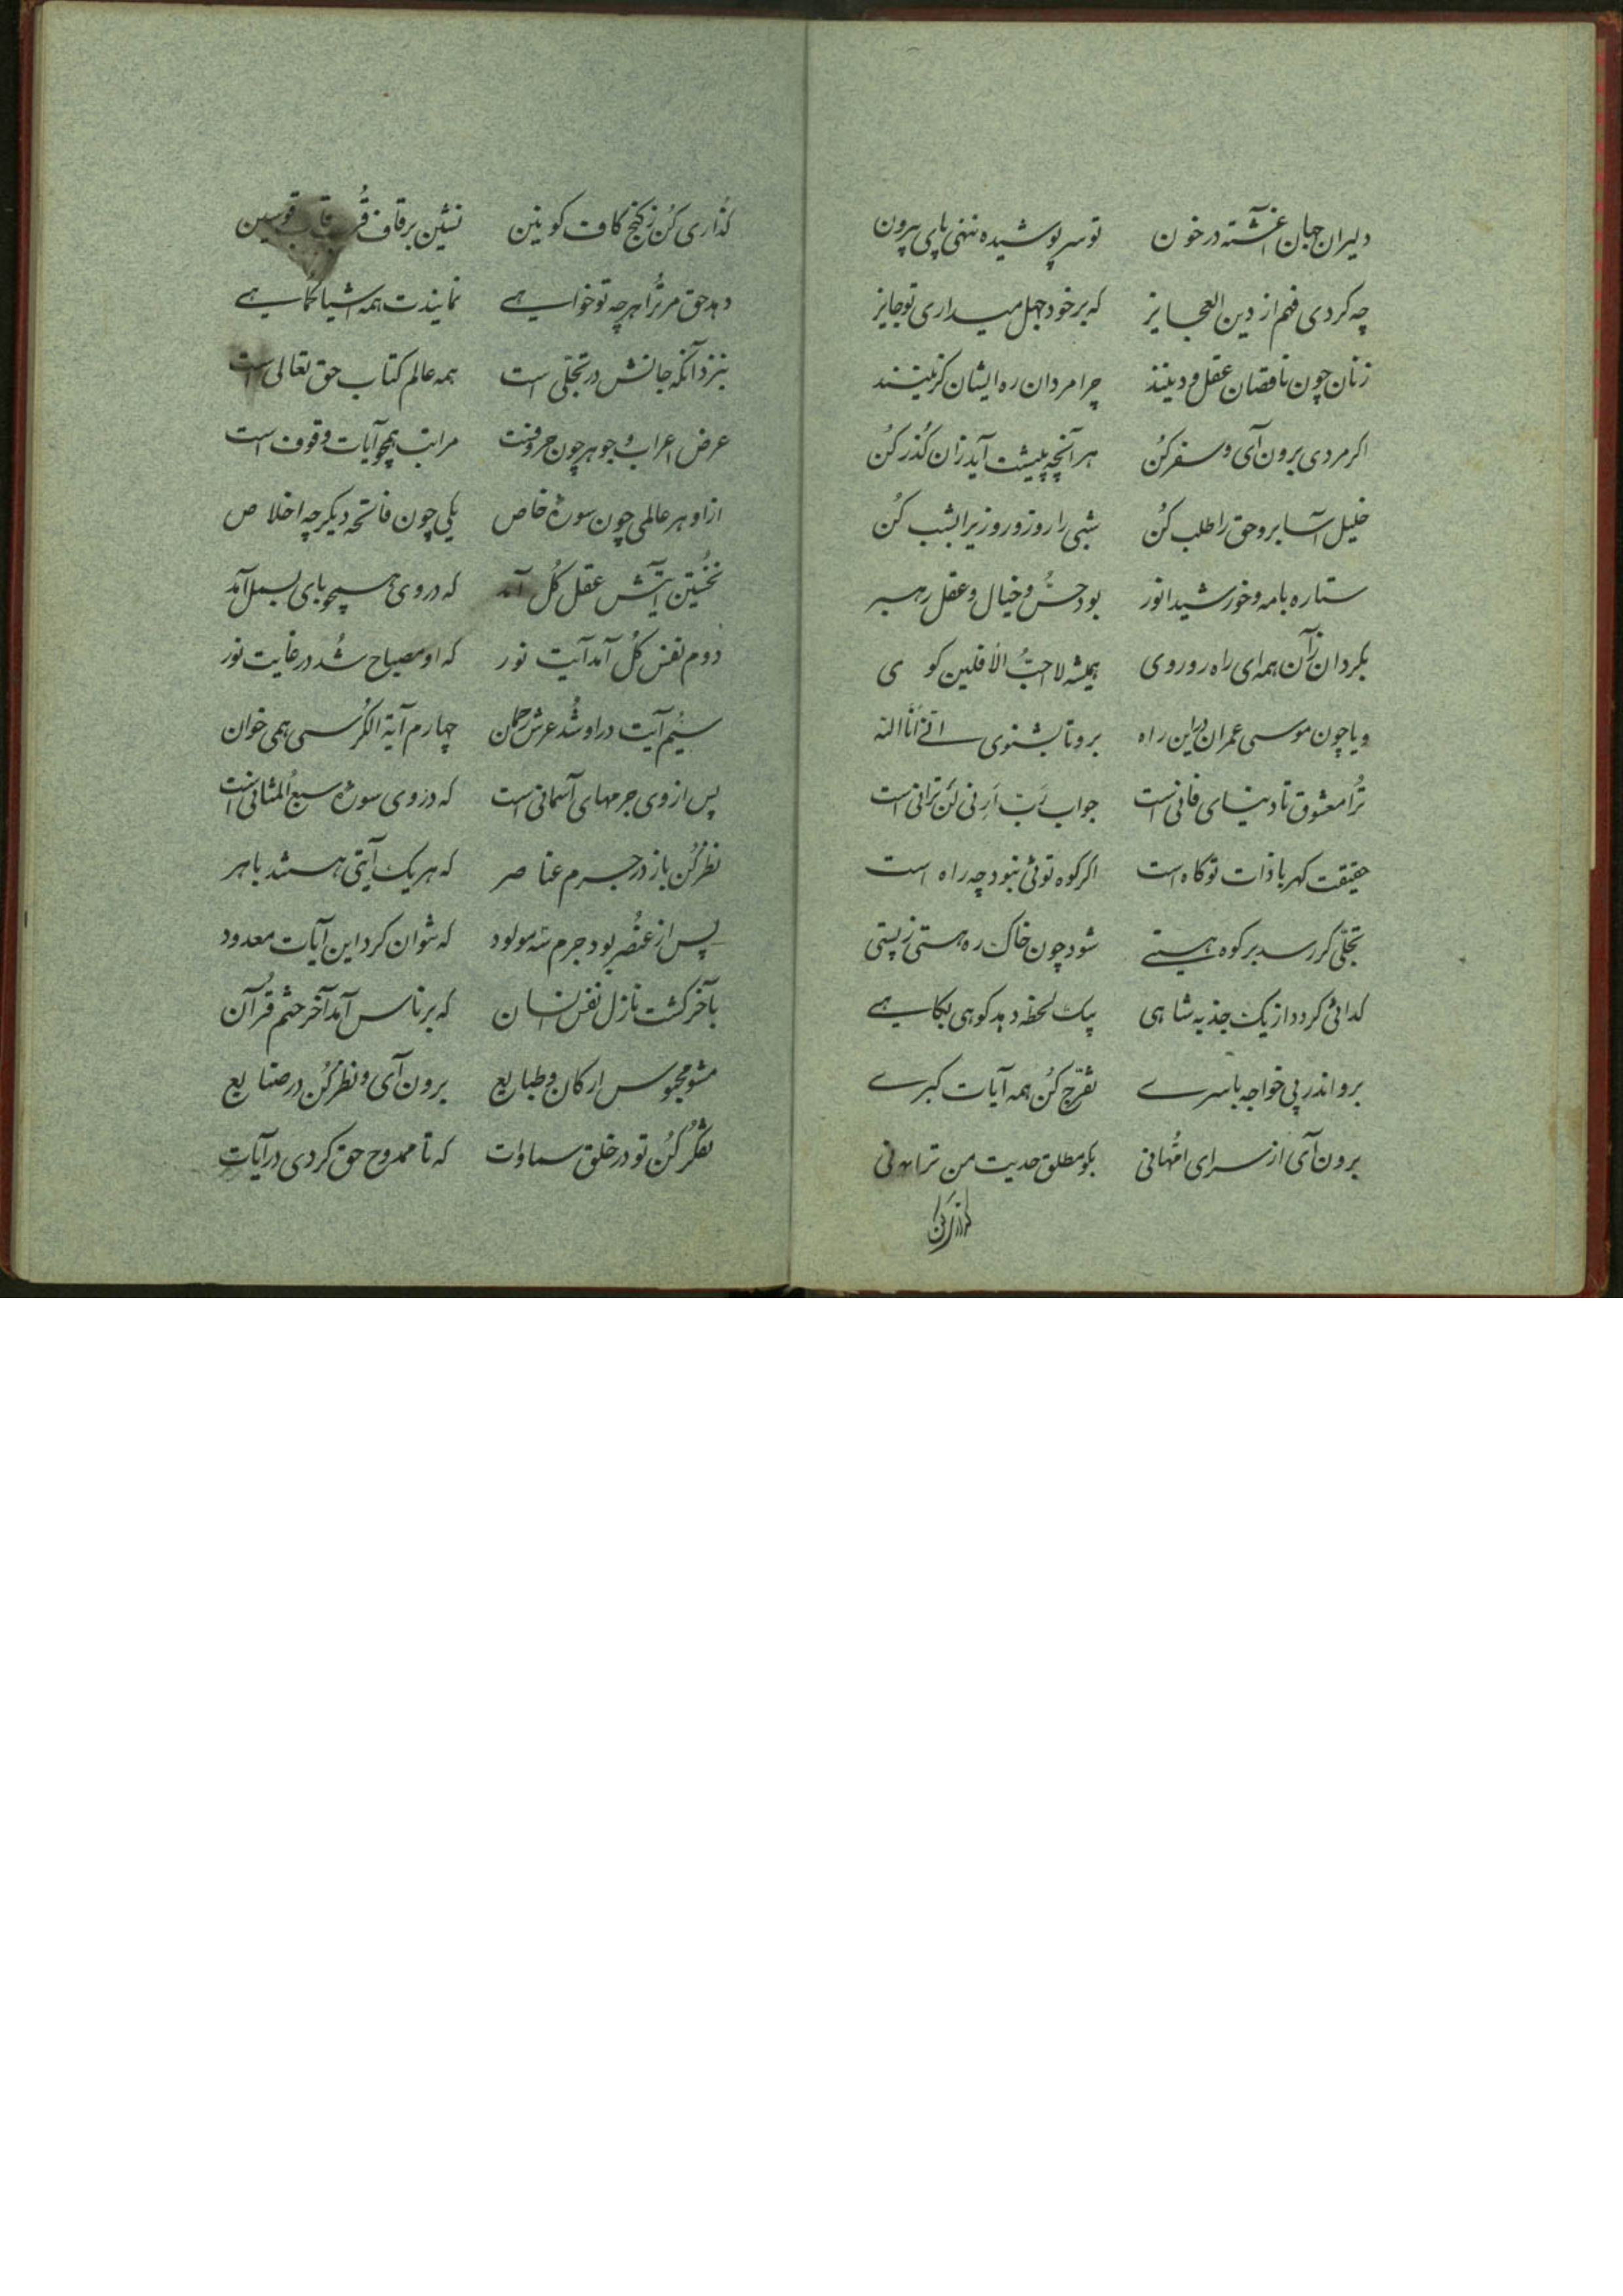 دلیران جهان آغشته در خون تو سر پوشیده ننهی پای بیرون
چه کردی فهم از دین العجایز که بر خود جهل میداری تو جایز
زنان چون ناقصان عقل و دینند چرا مردان ره ایشان گزینند
اگر مردی برون آی و سفر کُن هر آنچه پیشت آید زان گُذر کُن
خلیل آسا برو حق را طلب کُن شبی را روز و روزیرا بشب کُن
ستاره با مه و خورشید انور بود حسّ و خیال و عقل رهبر
بگردان زآن همه ای راه رو روی همیشه لا احبُّ الأفلین گوی
و یا چون موسی عمران درین راه برو تا بشنوی انّی أنا الله
تُرا معشوق تا دنیای فانی است جواب رَبّ اَرِنی لَن تَرانی است
حقیقت کهربا ذات تو کاه است اگر کوه توئی نبود چه راه است
تجلّی گر رسد بر کوه هستے شود چون خاک ره هستی ز پستی
گدائی گردد از یک جذبه شاهی بیک لحظه دهد کوهی بکاهے
برو اندر پی خواجه باسرے تفرّج کُن همه آیات کبرے
برون آی از سرای اُمّهانی بگو مطلق حدیت من ترانی
گذاری کُن ز کنج کاف کونین نشین بر قاف قُرب قاب قوسین
دهد حق مر تُرا هر چه تو خواهے نمایندت همه اشیا کماهے
بنزد آنکه جانش در تجلّی است همه عالم کتاب حق تعالی است
عرض اعراب و جوهر چون حروفست مراتب همچو آیات وقوف است
ازاو هر عالمی چون سورۀ خاص یکی چون فاتحه دیگر چه اخلاص
نخُستین آیتش عقل کُل آمد که در وی همچو بای بسمل آمد
دوم نفس کُل آمد آیت نور که او مصباح شُد در غایت نور
سیُم آیت در او شُد عرش رحمان چهارم آیة الکُرسی همی خوان
پس از وی جرمهای آسمانی است که در وی سورۀ سبع المثانی است
نظر کُن باز در جرم عناصر که هر یک آیتی هستند باهر
پس از عنصُر بود جرم سه مولود که نتوان کرد این آیات معدود
بآخر گشت نازل نفس انسان که بر ناس آمد آخر ختم قُرآن
مشو محبوس ارکان و طبایع برون آی و نظر کُن در صنایع
تفکّر کُن تو در خلق سماوات که تا ممدوح حق گردی در آیات
گذاری کن